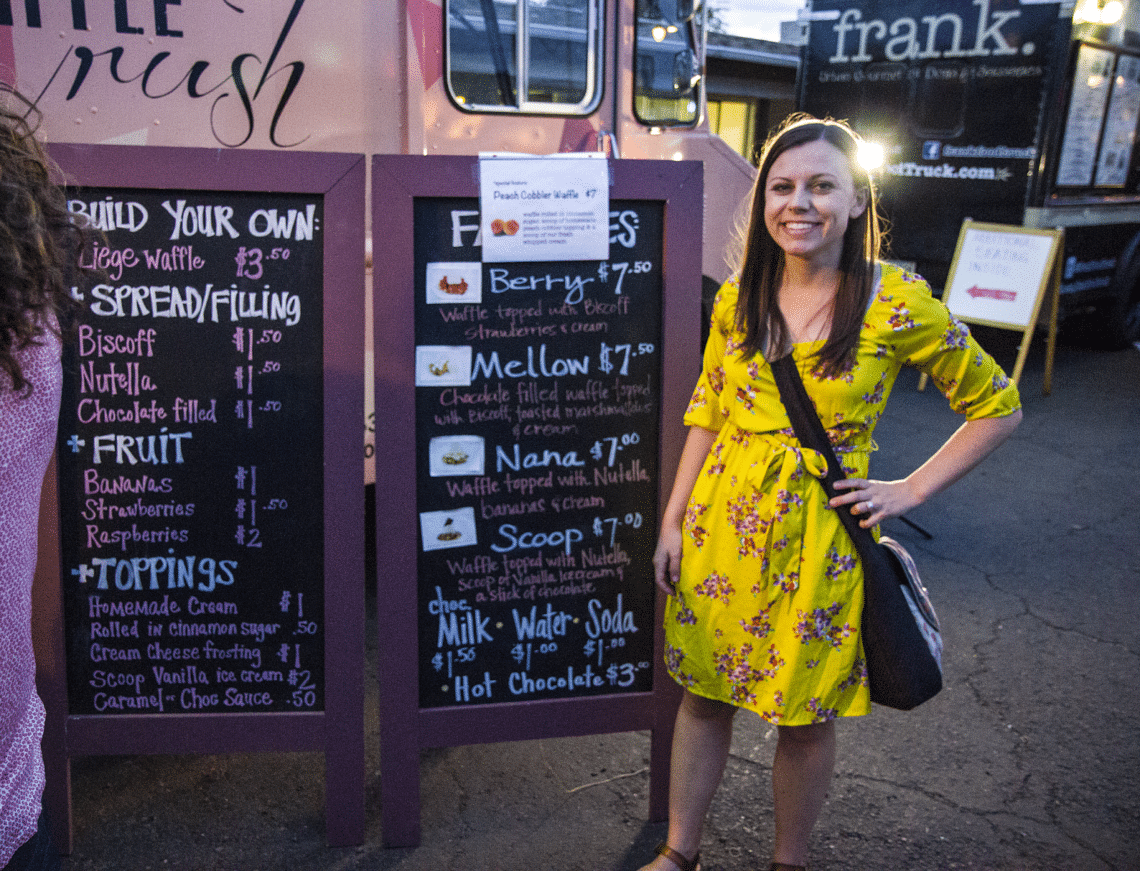 rush
BUILD YOUR OWN:
Liege Waffle $3.50
+ SPREAD/FILLING
Biscoff $1.50
Nutella $1.50
Chocolate filled $1.50
+ FRUIT
Bananas $1
Strawberries $1.50
Raspberries $2
+ TOPPINGS
Homemade Cream $1
Rolled in cinnamon sugar .50
Cream Cheese frosting $1
Scoop Vanilla ice cream $2
Caramel or Choc Sauce .50
Peach Cobbler Waffle $7
waffle rolled in cinnamon
sugar, scoop of homemade
peach cobbler topping & a
scoop of our fresh
whipped cream
Berry $7.50
Waffle topped with Biscoff
strawberries & cream
Mellow $7.50
Chocolate filled waffle topped
with Biscoff, toasted marshmallows
& cream
Nana $7.00
Waffle topped with Nutella,
bananas & cream
Scoop $7.00
Waffle topped with Nutella,
scoop of Vanilla Ice cream &
a stick of chocolate
choc.
Milk · Water · Soda
$1.50 $1.00 $1.00
· Hot Chocolate $3.00
frank.
Truck.com
INSIDE